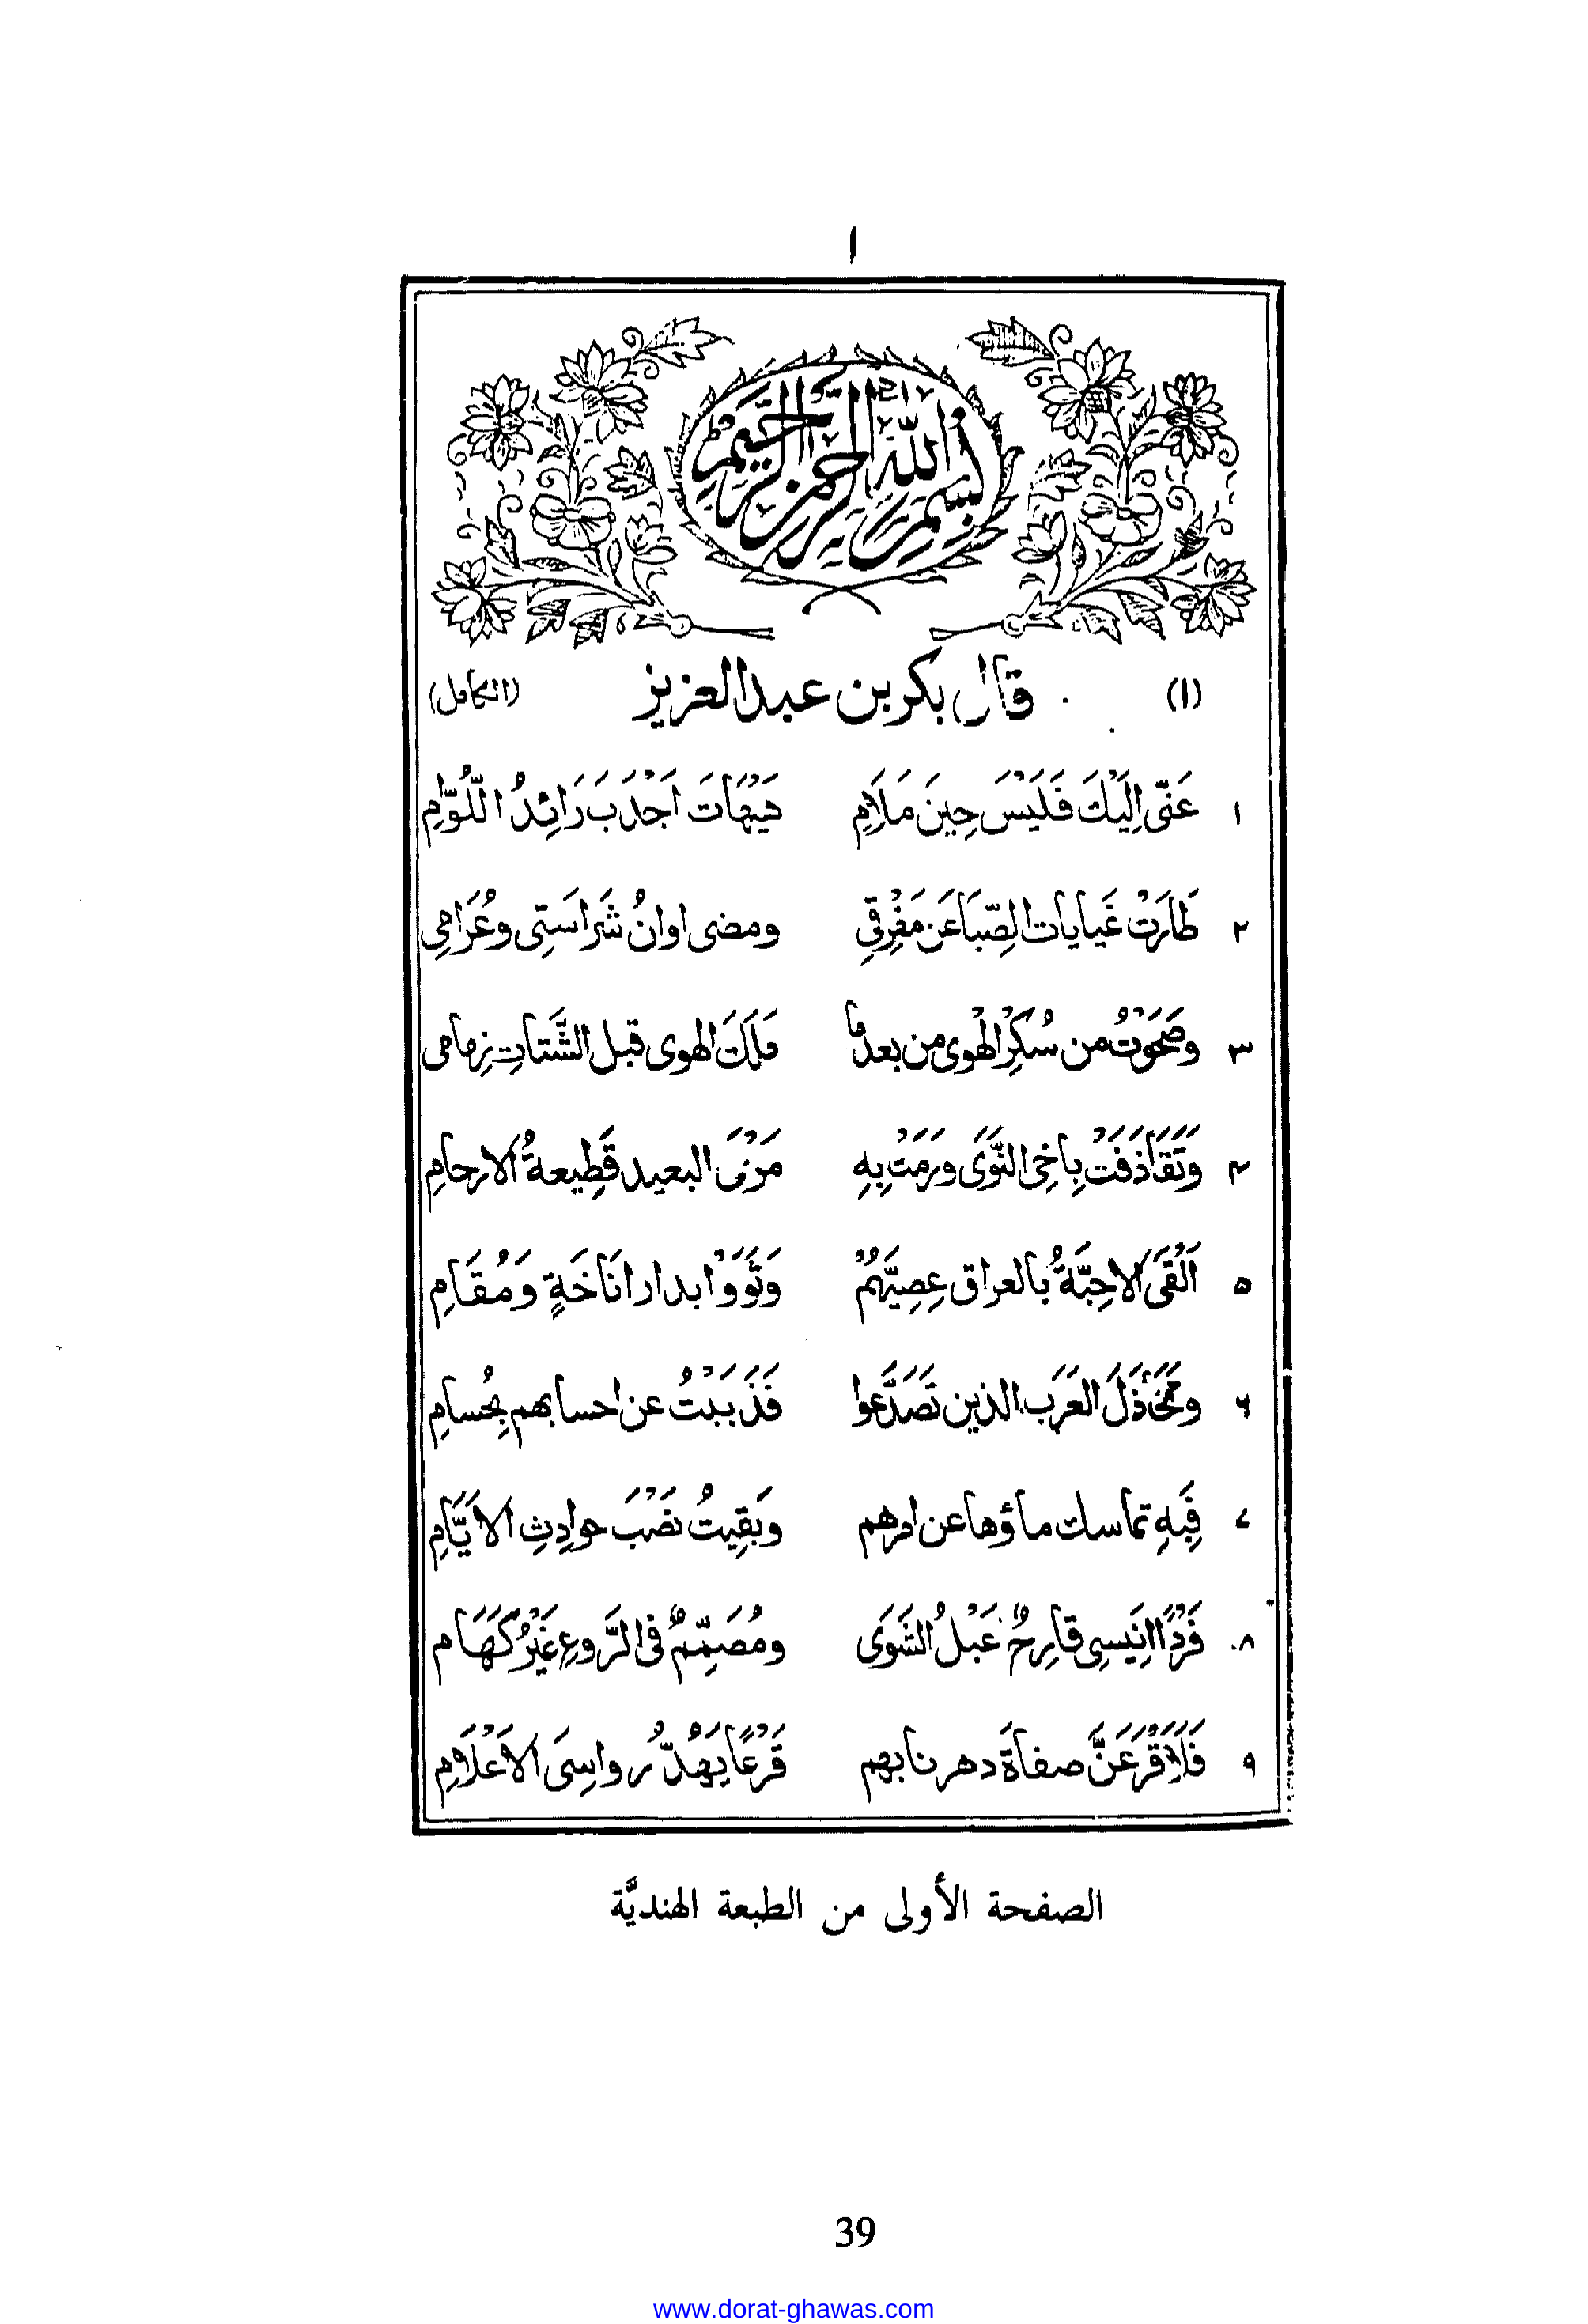 ١
بسم الله الرحمن الرحيم
(١) قال بكر بن عبد العزيز (الكامل)
١ عَنّى اِلَيْكَ فَلَيْسَ حِينَ مَلَامِ هَيْهَاتَ اَجْدَبَ رَائِدُ اللُّوَّامِ
٢ طَارَتْ غَيايات الصِّبَا عَن مَفْرِقي ومضى اوانُ شَراسَتِى وعُرَامِى
٣ وصَحَوْتُ من سُكْرِ الهْوى من بعد ما مَلَكَ الهوى قبل الشَّتاتِ زِمامى
٤ وَتَقَاذَفَتْ بِاَخِى النَّوَى وَرَمَتْ بِهِ مَرْمَى البعيد قَطِيعةُ الارحامِ
٥ اَلْقَى الاحِبَّةُ بالعراق عِصِيَّهُمْ وَثَوَوْا بدار انَاخَةٍ وَمُقَامِ
٦ وتَخَاذَلَ العَرَب الذين تَصَدَّعوا فَذَبَبْتُ عن احسابهم بِحُسامِ
٧ فِيَهِ تماسك ماؤها عن امرهم وبَقِيتُ نَصْبَ حوادِثِ الايَّامِ
٨ فَرْدًا اَنِيسِى قارِحٌ عَبْلُ الشَّوَى ومُصَمِّمٌ فى الرَّوعِ غَيْرُ كَهَامِ
٩ فَلَاَقْرَعَنَّ صفاةَ دهر نابهم قَرْعًا يَهُدُّ رواسِىَ الاَعْلَامِ
الصفحة الأولى من الطبعة الهنديَّة
39
www.dorat-ghawas.com